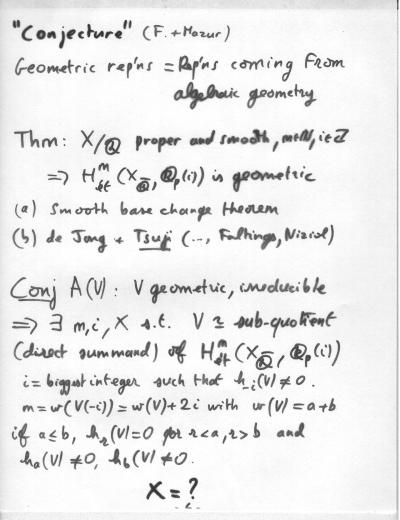 "Conjecture" (F. + Mazur)
Geometric rep'ns = Rep'ns coming from
algebraic geometry
Thm: X/ℚ proper and smooth, m∈ℕ, i∈ℤ
⇒ H^m_ét (X_ℚ̄, ℚ_p(i)) is geometric
(a) Smooth base change theorem
(b) de Jong + Tsuji (..., Faltings, Niziol)
Conj A(V): V geometric, irreducible
⇒ ∃ m, i, X s.t. V ≃ sub-quotient
(direct summand) of H^m_ét (X_ℚ̄, ℚ_p(i))
i = biggest integer such that h_-i(V) ≠ 0.
m = w(V(-i)) = w(V)+2i with w(V) = a+b
if a≤b, h_r(V)=0 for r<a, r>b and
h_a(V) ≠0, h_b(V) ≠0.
X = ?